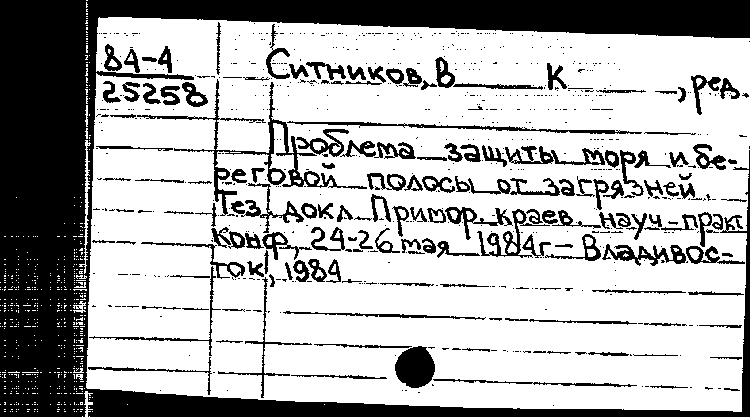 84-4
25258
Ситников, В К , ред.
Проблема защиты моря и бе-
реговой полосы от загрязней.
Тез. докл Примор. краев. науч-практ
конф, 24-26 мая 1984г - Владивос-
ток, 1984.